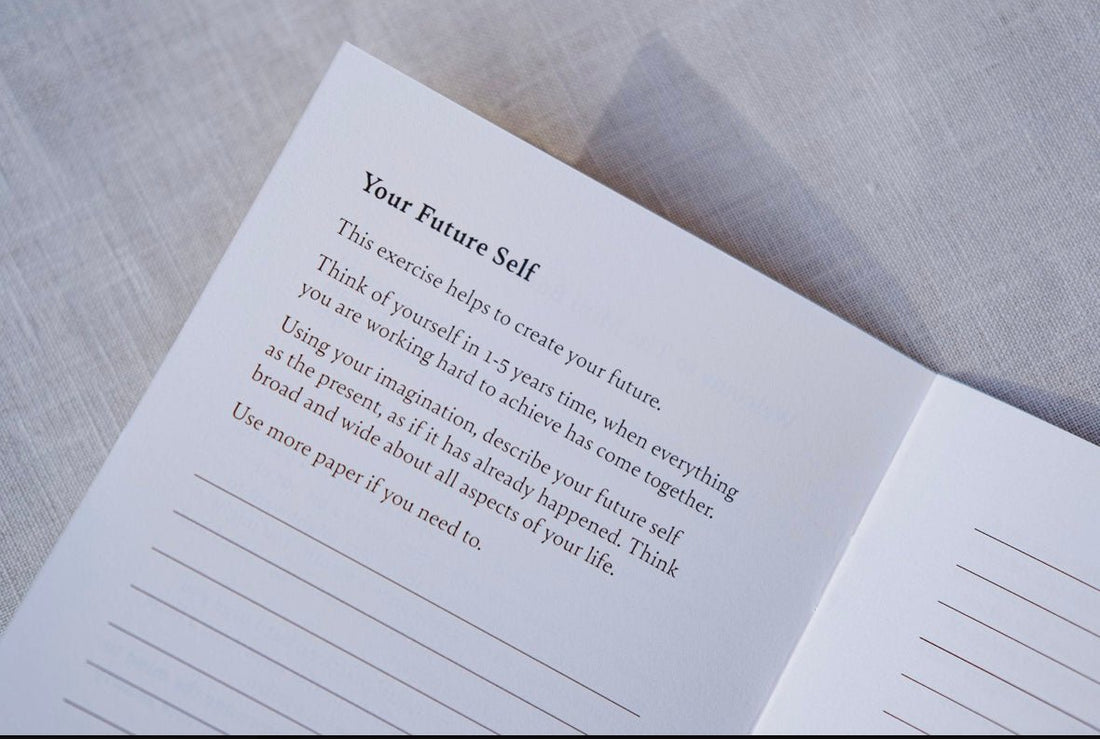 Your Future Self
This exercise helps to create your future.
Think of yourself in 1-5 years time, when everything
you are working hard to achieve has come together.
Using your imagination, describe your future self
as the present, as if it has already happened. Think
broad and wide about all aspects of your life.
Use more paper if you need to.